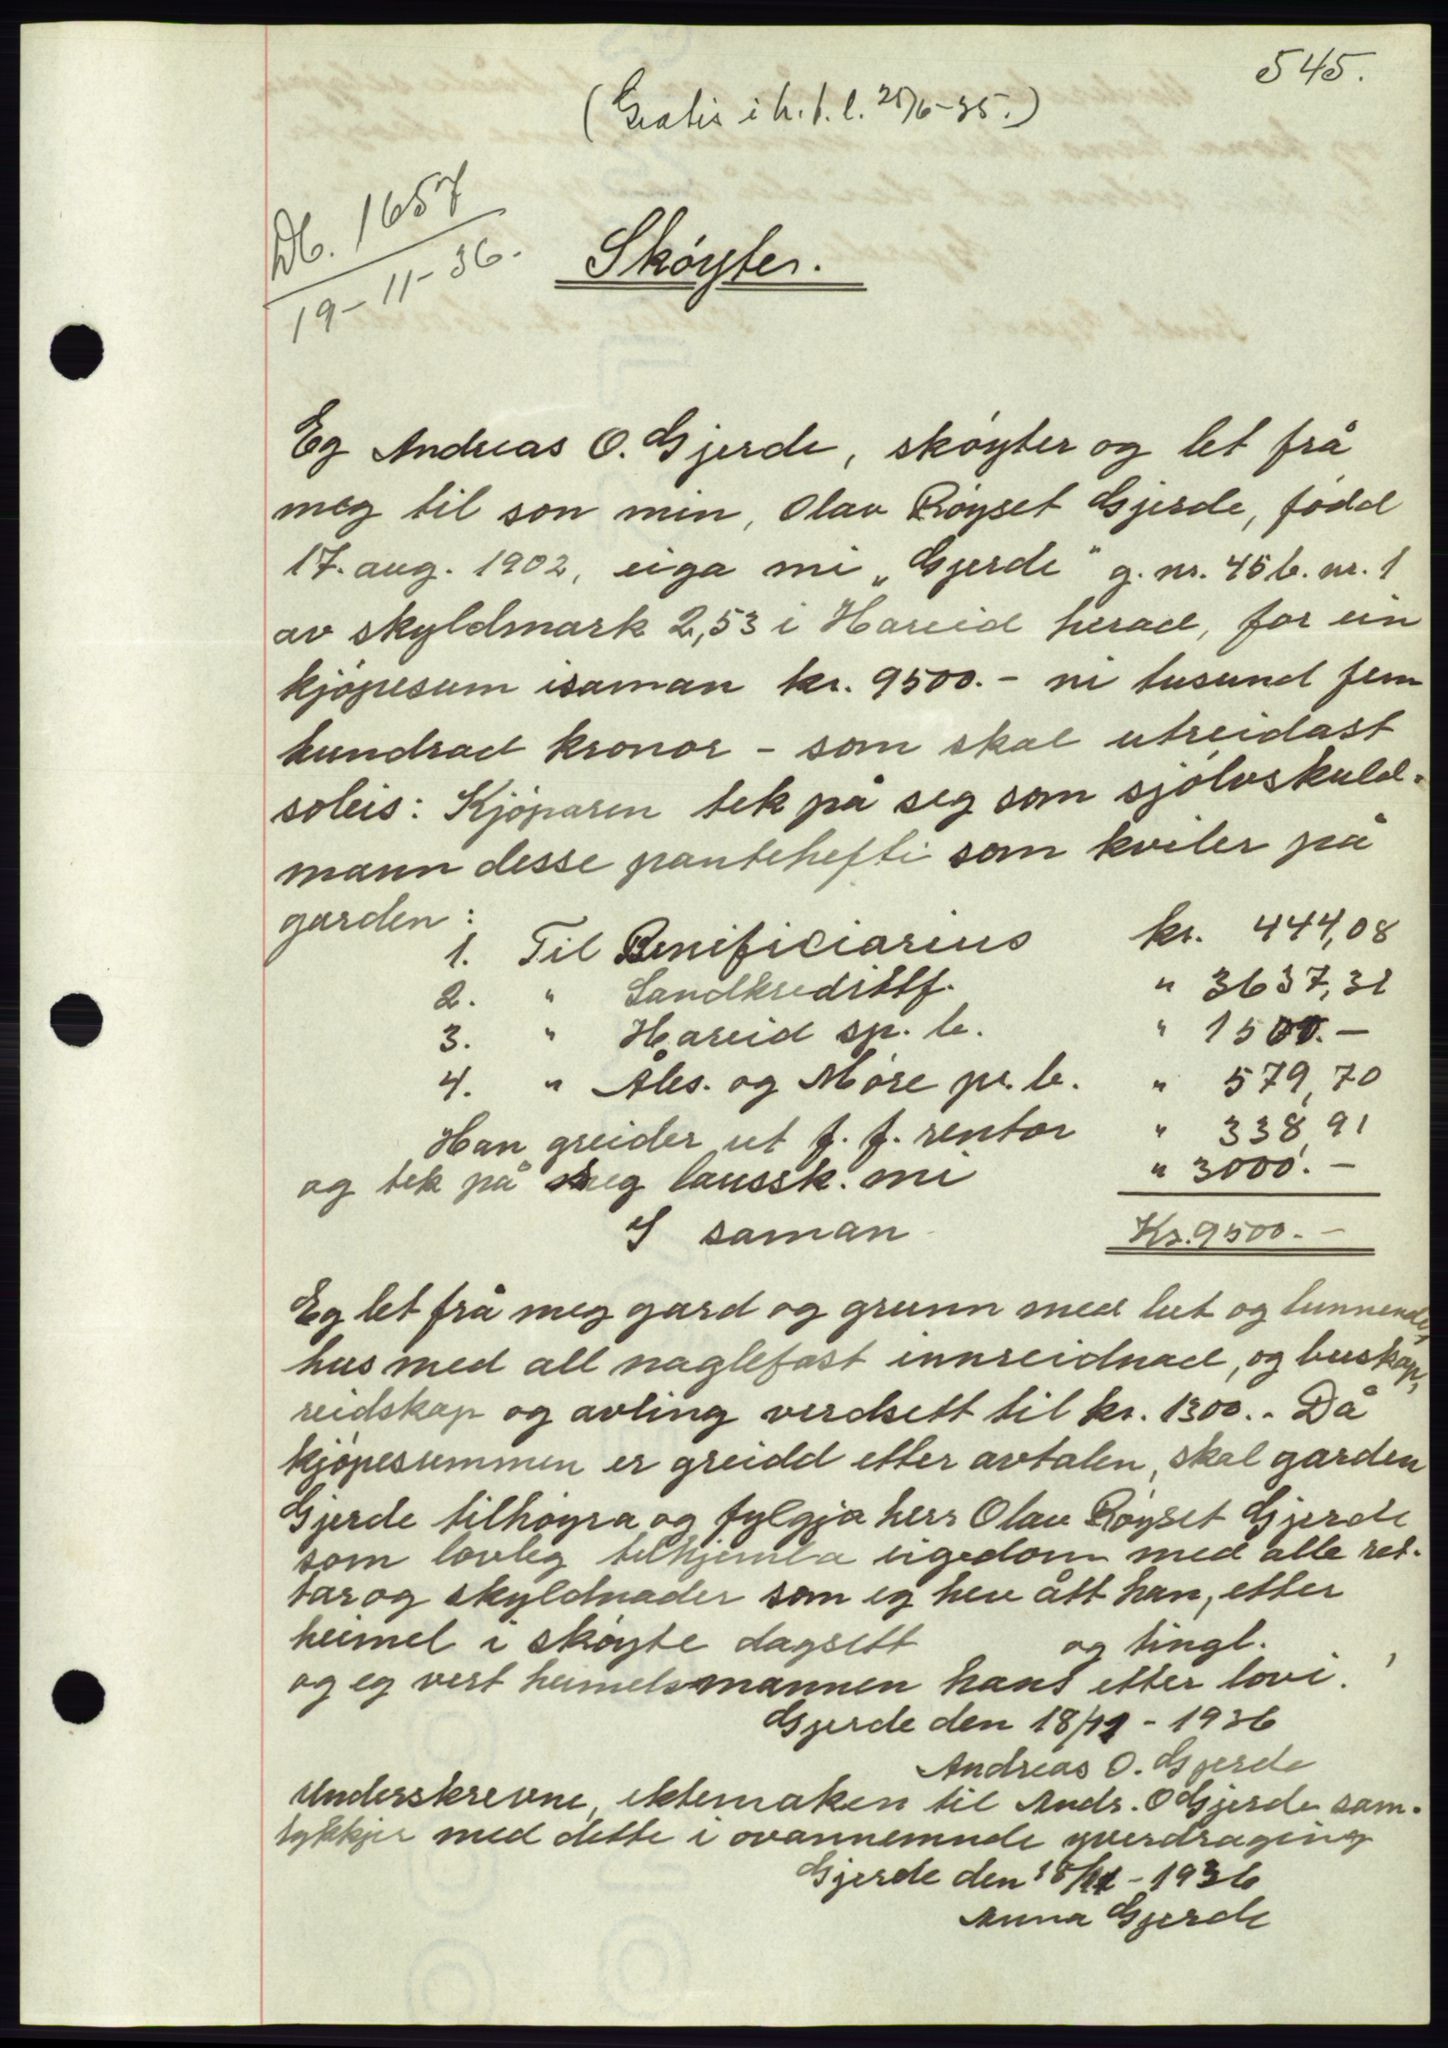 545.
(Gratis i h.t.l. 25/6-35.)
Db. 1657
19-11-36.
Skøyter.
Eg Andreas O. Gjerde, skøyter og let frå
meg til son min, Olav Røyset Gjerde, fødd
17. aug. 1902, eiga mi „Gjerde" g. nr. 45 b. nr. 1
av skyldmark 2,53 i Hareid herad, for ein
kjøpesum isaman kr. 9500.- ni tusund fem
hundrad kronor - som skal utreidast
soleis: Kjøparen tek på seg som sjølvskuld-
mann desse pantehefti som kviler på
garden:
1. Til Benificiarius kr. 444,08
2. " Landkredittf. " 3637,31
3. " Hareid sp. b. " 1500.-
4. " Åles. og Møre pr. b. " 579,70
Han greider ut f. f. rentor " 338,91
og tek på seg laussk. mi " 3000.-
I saman Kr. 9500.-
Eg let frå meg gard og grunn med lut og lunnende,
hus med all naglefast innreidnad, og buskap,
reidskap og avling verdsett til kr. 1300.- Då
kjøpesummen er greidd etter avtalen, skal garden
Gjerde tilhøyra og fylgja herr Olav Røyset Gjerde
som lovleg tilhjemla eigedom med alle ret-
tar og skyldnader som eg hev ått han, etter
heimel i skøyte dagsett og tingl.
og eg vert heimelsmannen hans etter lovi.
Gjerde den 18/11 - 1936
Andreas O. Gjerde
Underskrevne, ektemaken til Andr. O Gjerde sam-
tykkjer med dette i ovannemnde yverdraging
Gjerde den 18/11 - 1936
Anna Gjerde